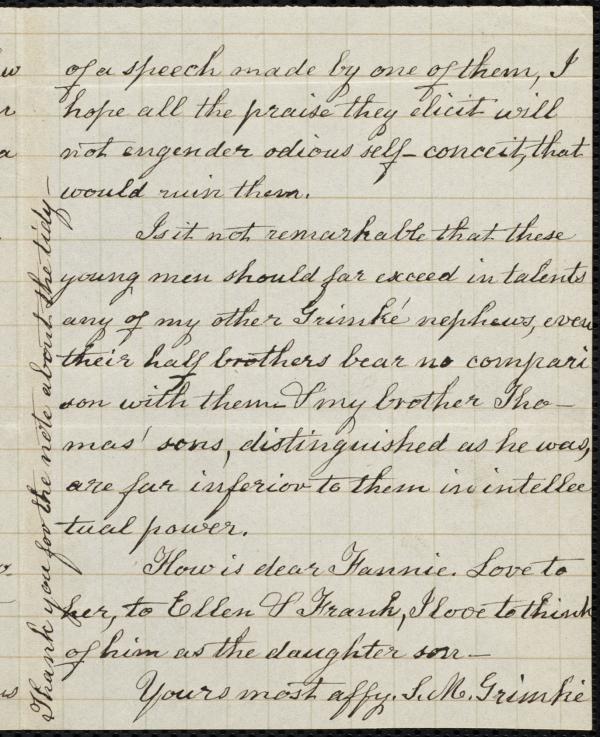 of a speech made by one of them, I
hope all the praise they elicit will
not engender odious self-conceit, that
would ruin them.
Is it not remarkable that these
young men should far exceed in talents
any of my other Grimké nephews, even
their half brothers bear no compari
son with them & my brother Tho-
mas' sons, distinguished as he was,
are far inferior to them in intellec
tual power.
How is dear Fannie. Love to
her, to Ellen & Frank, I love to think
of him as the daughter son-
Yours most affy. S. M. Grimké
Thank you for the note about the tidy-